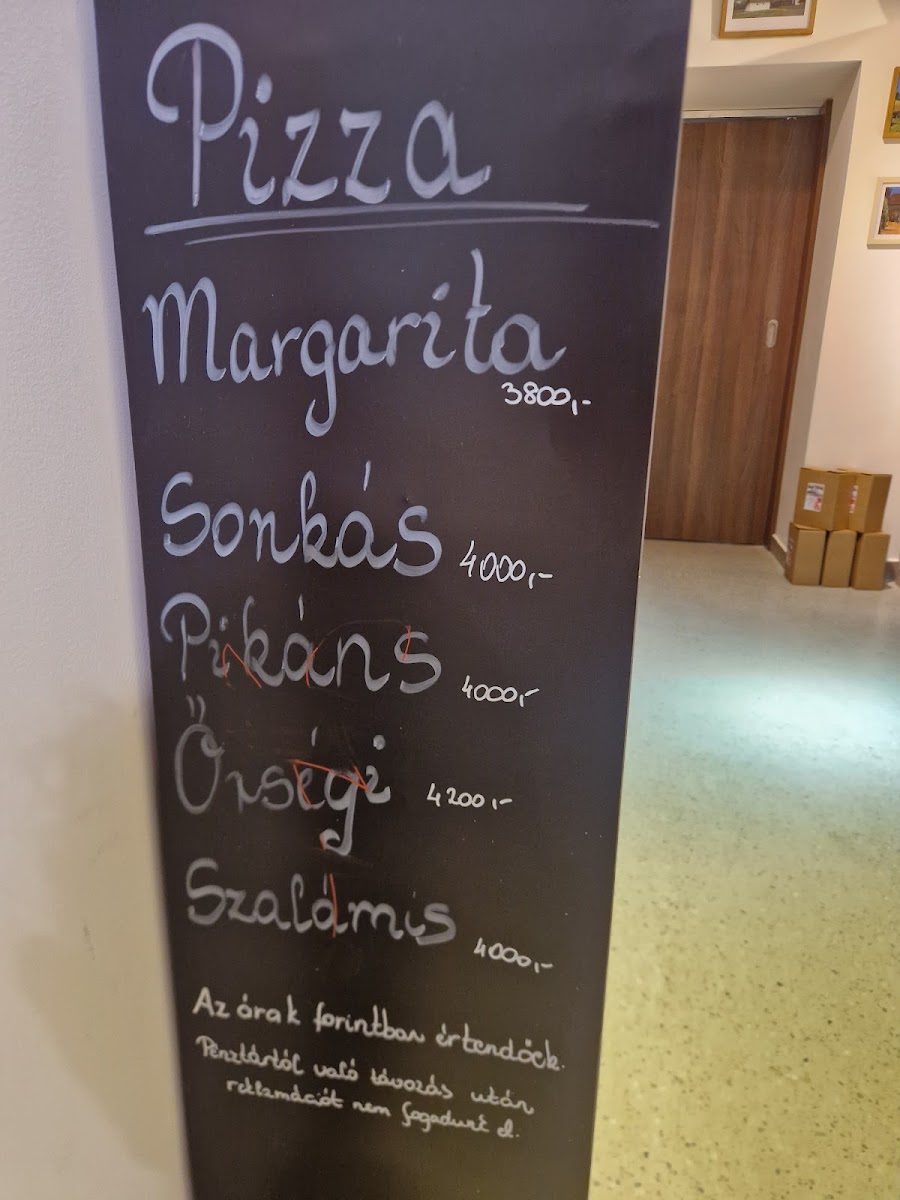 Pizza
Margaríta
3800,-
Sonkás 4000,-
Pikáns 4000,-
Őrségi 4200,-
Szalámis 4000,-
Az órak forintban értendőek.
Pénztártól való távozás után
reklamációt nem fogadunk el.